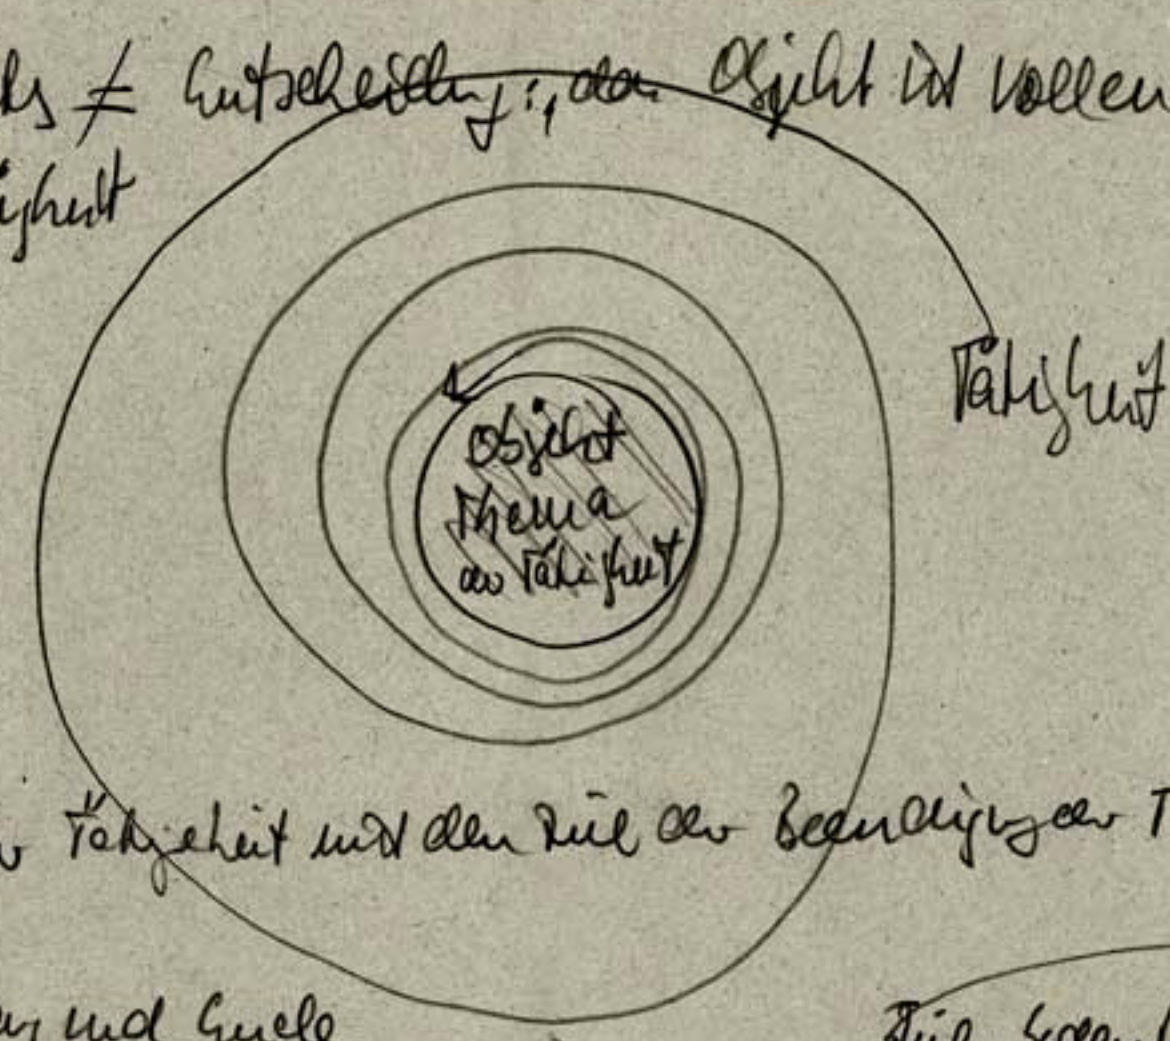 ≠ Entscheidung: das Objekt ist vollen
igkeit
Tätigkeit
Objekt
Thema
der Tätigkeit
Tätigkeit mit dem Ziel der Beendigung der T
und Ende